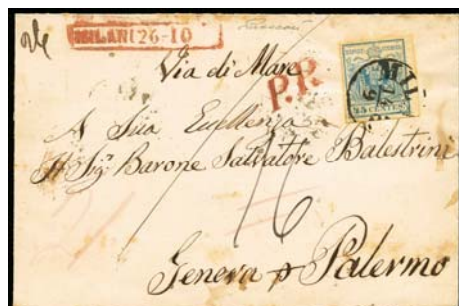 MILANO 26-10
Via di Mare
P.P.
45 CENTES
MIL
A Sua Eccellenza
Il Sigr Barone Salvatore Balestrini
16
Genova p Palermo